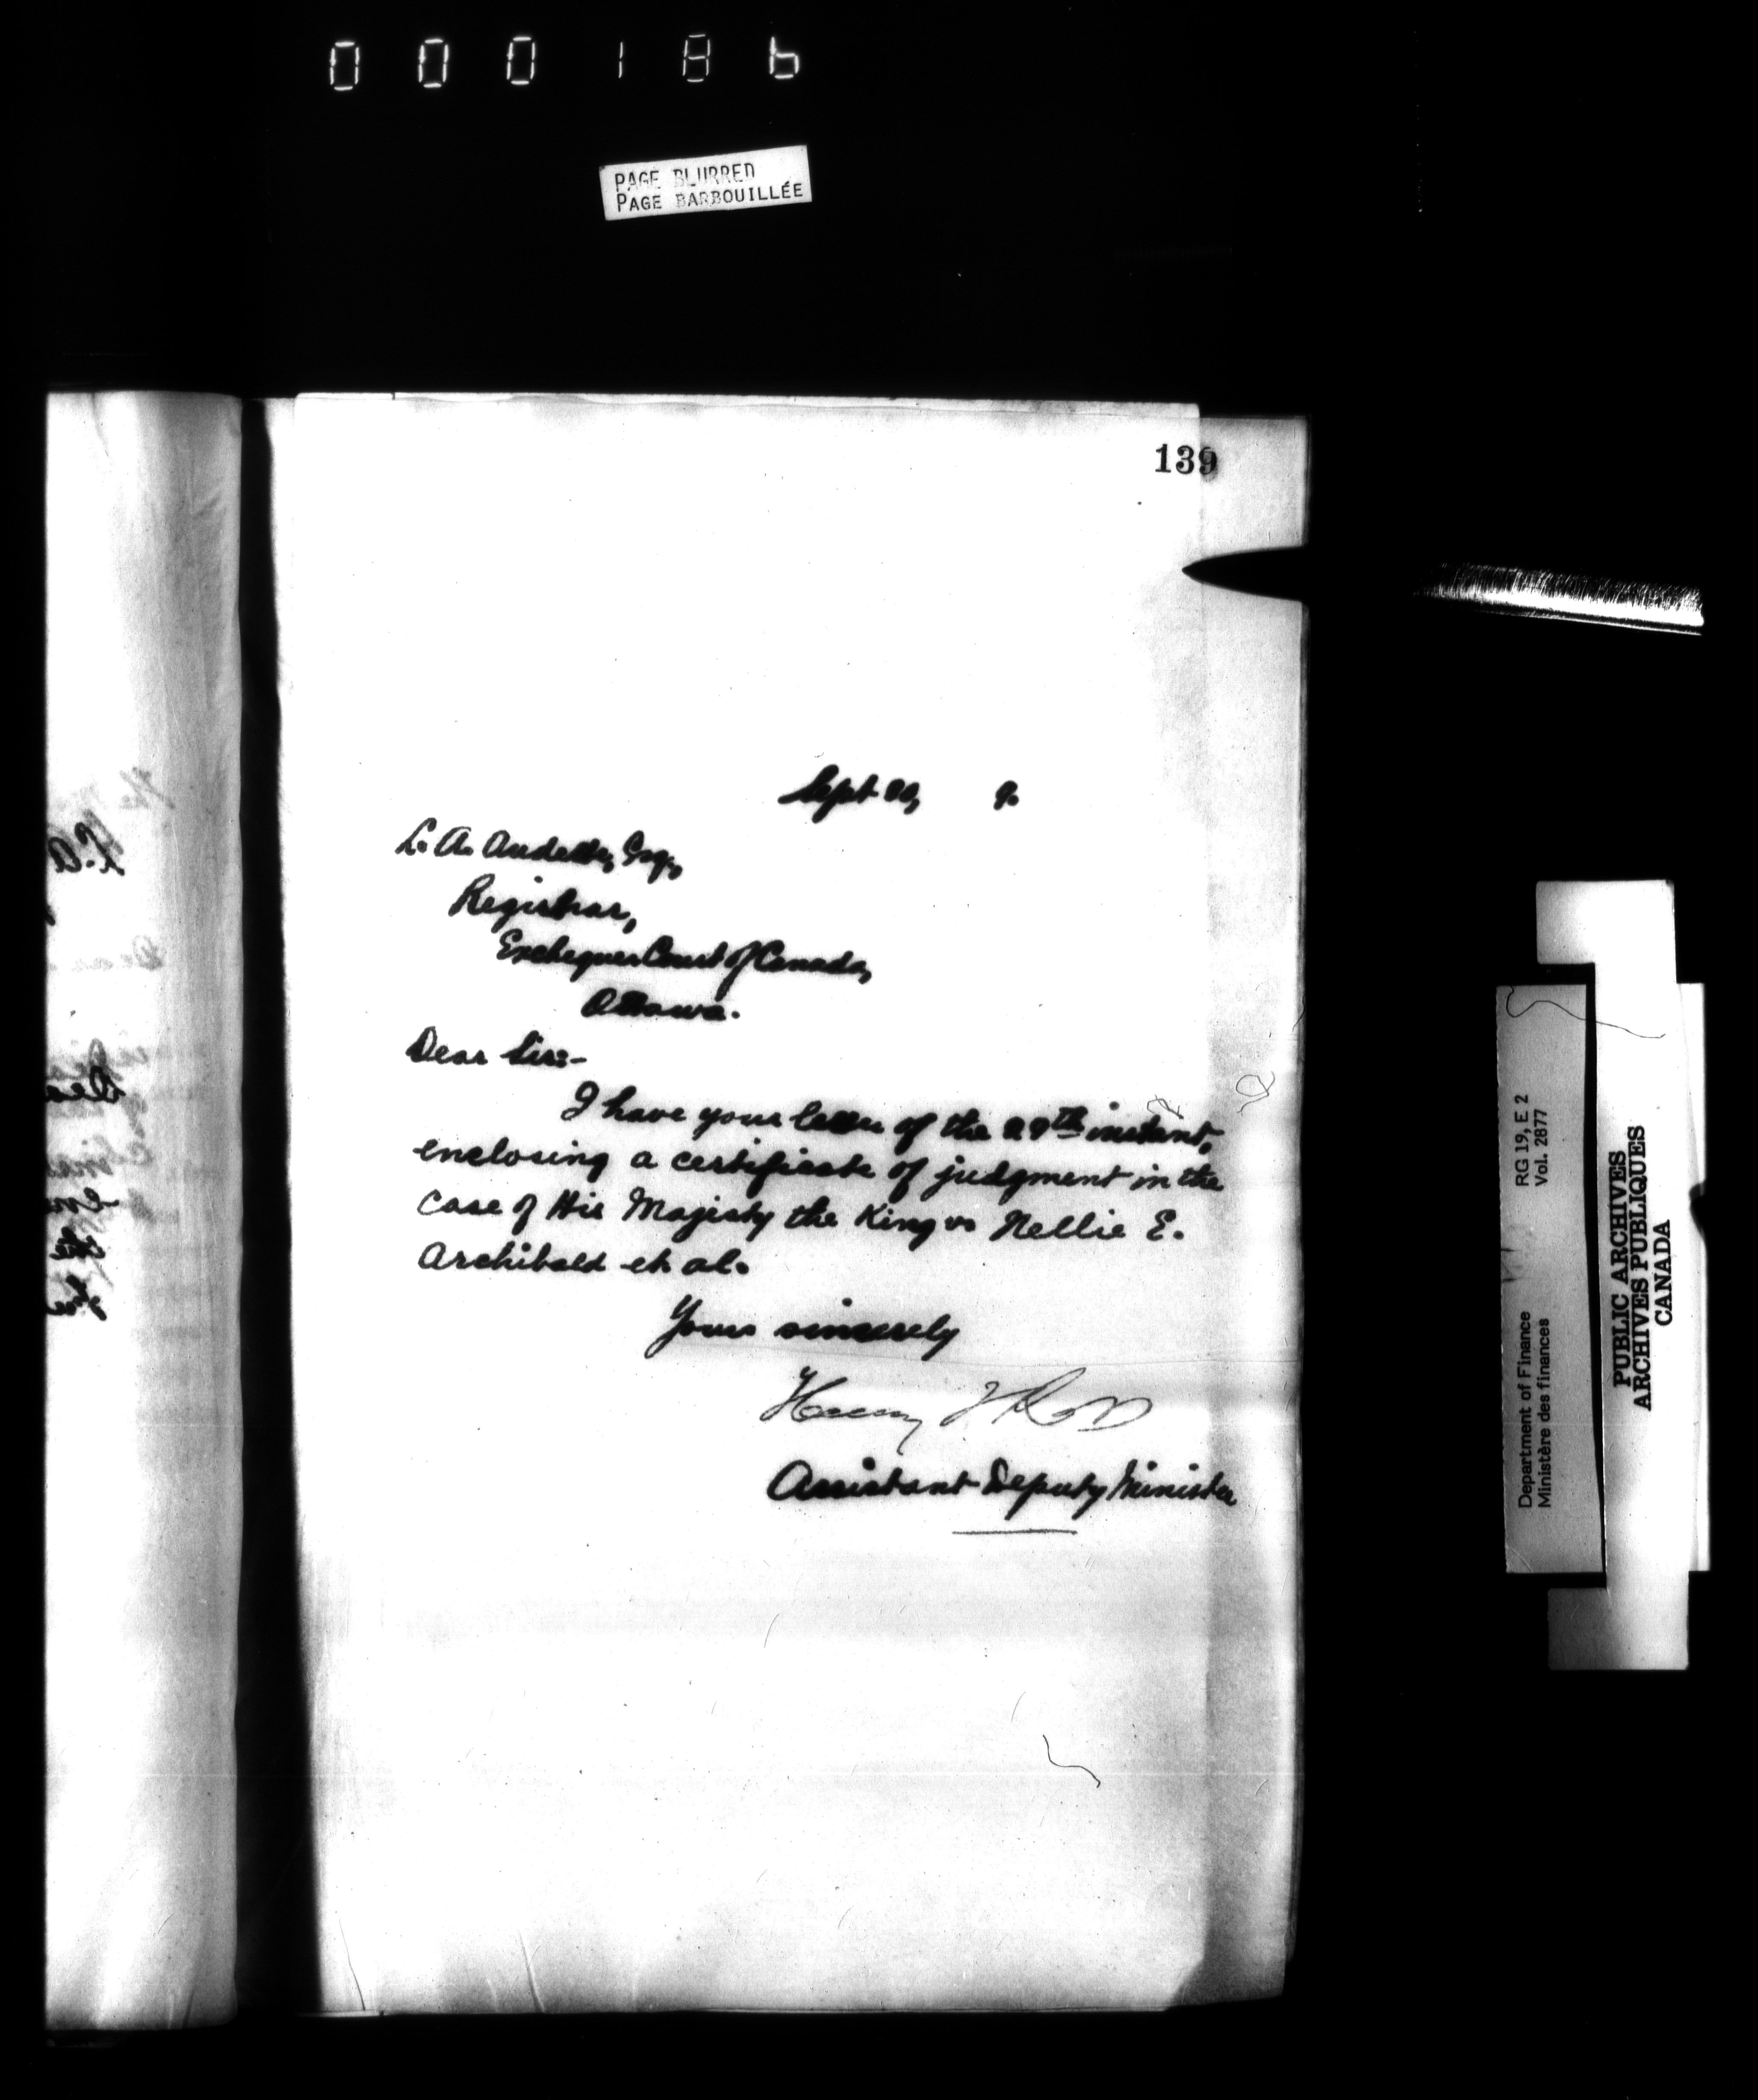 000186
PAGE BLURRED
PAGE BARBOUILLÉE
139
Sept 30, 9.
L. A. Audette, Esq.,
Registrar,
Exchequer Court of Canada,
Ottawa.
Dear Sir:-
I have your letter of the 29th instant,
enclosing a certificate of judgment in the
case of His Majesty the King vs Nellie E.
Archibald et al.
Yours sincerely
Henry T Ross
Assistant Deputy Minister
Department of Finance RG 19, E 2
Ministère des finances Vol. 2877
PUBLIC ARCHIVES
ARCHIVES PUBLIQUES
CANADA